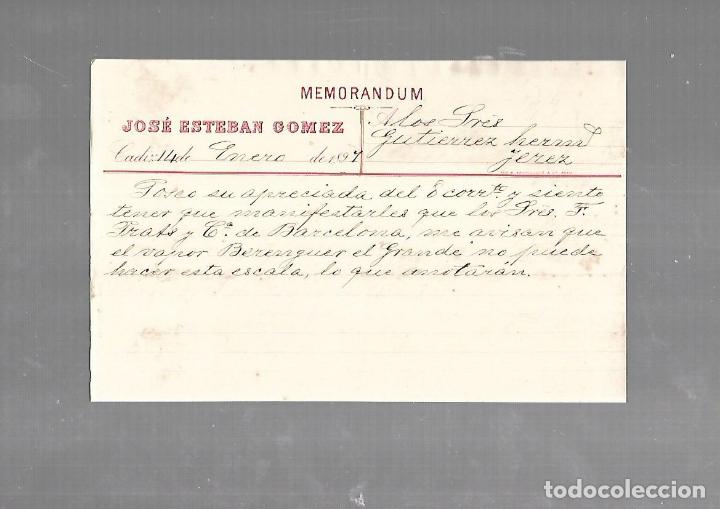 MEMORANDUM
JOSÉ ESTEBAN GOMEZ
Cadiz 14 de Enero de 1897
A los Sres
Gutierrez herm
Jerez
Poseo su apreciada del 8 corrte y siento
tener que manifestarles que los Sres. F.
Prats y Cª de Barcelona, me avisan que
el vapor "Berenguer el Grande" no puede
hacer esta escala, lo que anotarán.
todocoleccion.net